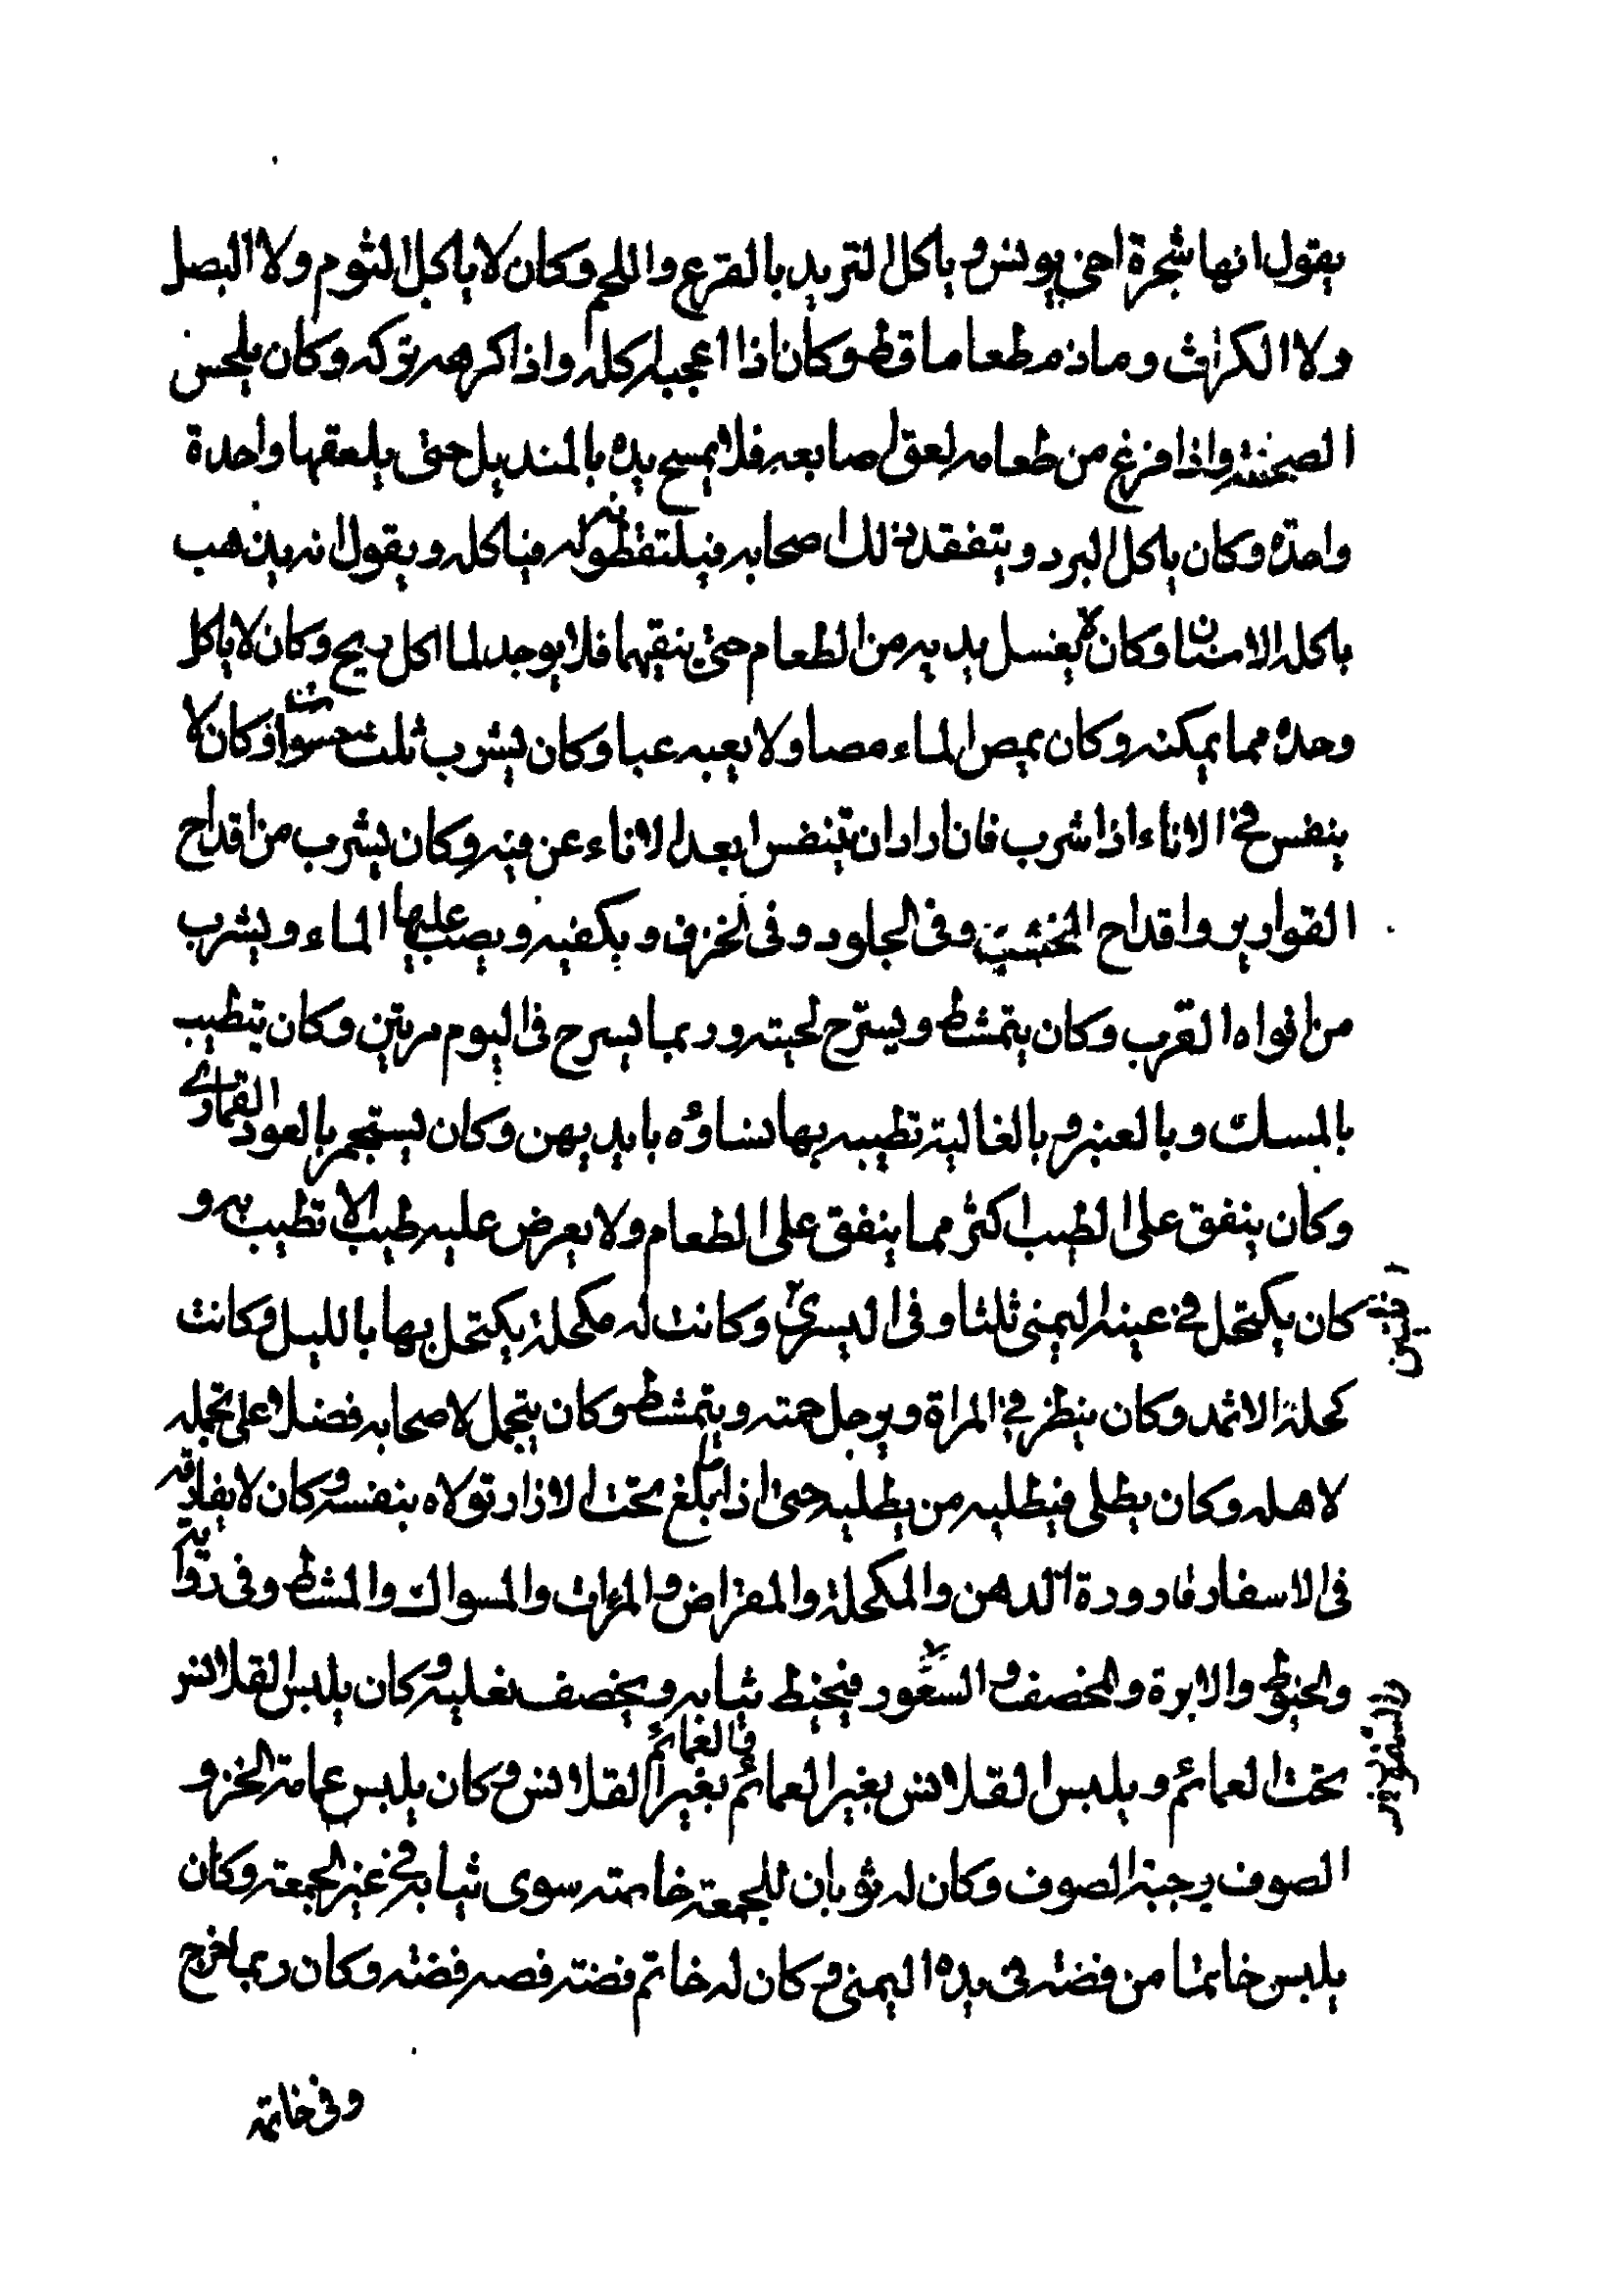 يقول انها شجرة اخي يونس و ياكل الثريد بالقرع واللحم وكان لا ياكل الثوم ولا البصل
ولا الكراث وما ذم طعاما قط وكان اذا اعجبه اكله واذا كرهه تركه وكان يلحس
الصحفة واذا فرغ من طعامه لعق اصابعه فلا يمسح يده بالمنديل حتى يلعقها واحدة
واحدة وكان ياكل البرد و يتفقد ذلك اصحابه فيلتقطونه له فياكله و يقول انه يذهب
باكلة الاسنان وكان لا يغسل يديه من الطعام حتى ينقيهما فلا يوجد لما اكل ريح وكان لا ياكل
وحده مما يمكنه وكان يمص الماء مصا ولا يعبه عبا وكان يشرب ثلث حسوات وكان لا
ينفس في الاناء اذا شرب فان اراد ان تنفس ابعد الاناء عن فيه وكان يشرب من اقداح
القوارير واقداح الخشب وفى الجلود و فى الخزف و بكفيه و يصب عليها الماء و يشرب
من افواه القرب وكان يتمشط و يسترح لحيته و ربما يسرح فى اليوم مرتين وكان يتطيب
بالمسك و بالعنبر و بالغالية تطيبه بها نساؤه بايديهن وكان يستجمر بالعود القمارى
وكان ينفق على الطيب اكثر مما ينفق على الطعام ولا يعرض عليه طيب الا تطيب به و
كان يكتحل في عينه اليمنى ثلثا و فى اليسرى وكانت له مكحلة يكتحل بها بالليل وكانت
اثنين
كحلة الاثمد وكان ينظر في المراة و يرجل جمته و يتمشط وكان يتجمل لاصحابه فضلا على تجمله
لاهله وكان يطلى فيطليه من يطليه حتى اذا بلغ تحت الازار تولاه بنفسه و كان لا يفارقه
فى الاسفار قارورة الدهن والمكحلة والمقراض والمرءات والمسواك والمشط وفى رواية
والخيوط والابرة والمخصف و السعور فيخيط ثيابه و يخصف نعليه و كان يلبس القلانس
تحت العمائم و يلبس القلانس بغير العمائم والعمائم بغير القلانس و كان يلبس عمامة الخز و
الصوف و جبة الصوف وكان له ثوبان للجمعة خاصته سوى ثيابه في غير الجمعة وكان
يلبس خاتما من فضة في يده اليمنى و كان له خاتم فضة فصه فضة وكان ربما خرج
وفى خاتمه